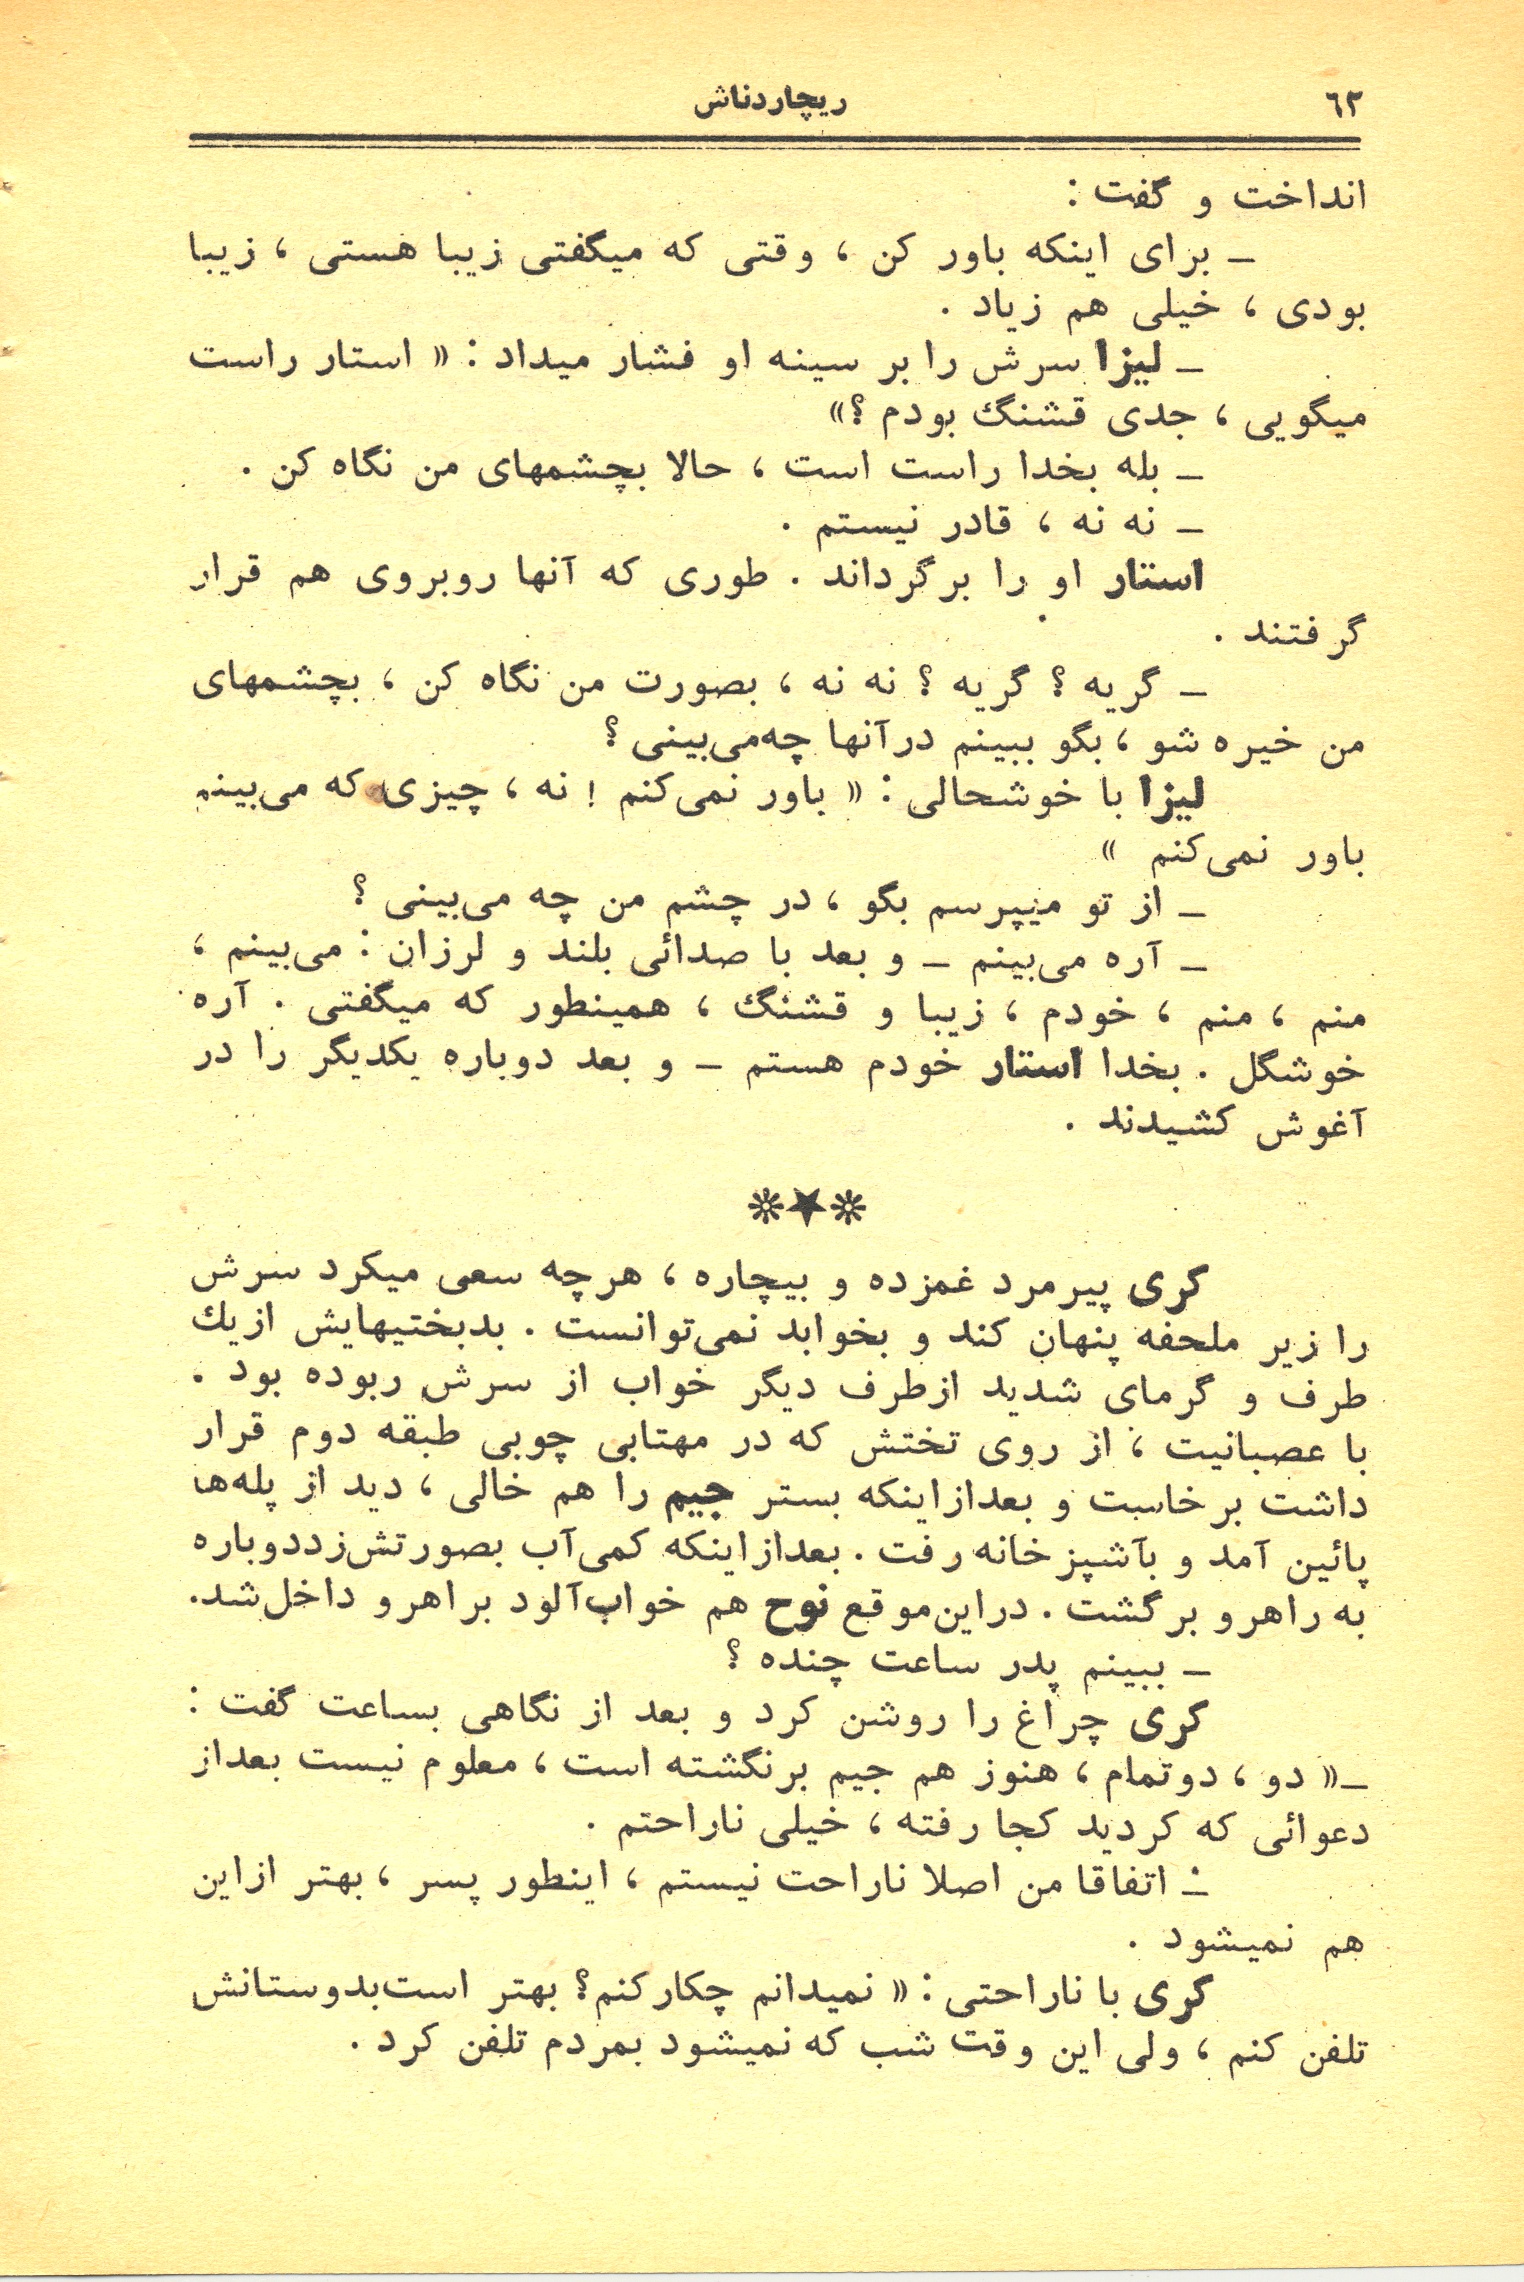 ٦٢
ریچاردناش
انداخت و گفت :
ـ برای اینکه باور کن ، وقتی که میگفتی زیبا هستی ، زیبا
بودی ، خیلی هم زیاد .
ـ لیزا سرش را بر سینه او فشار میداد : « استار راست
میگویی ، جدی قشنگ بودم ؟»
ـ بله بخدا راست است ، حالا بچشمهای من نگاه کن .
ـ نه نه ، قادر نیستم .
استار او را برگرداند . طوری که آنها روبروی هم قرار
گرفتند .
ـ گریه ؟ گریه ؟ نه نه ، بصورت من نگاه کن ، بچشمهای
من خیره شو ، بگو ببینم درآنها چه‌می‌بینی ؟
لیزا با خوشحالی : « باور نمی‌کنم ! نه ، چیزی که می‌بینم
باور نمی‌کنم »
ـ از تو میپرسم بگو ، در چشم من چه می‌بینی ؟
ـ آره می‌بینم ـ و بعد با صدائی بلند و لرزان : می‌بینم ،
منم ، منم ، خودم ، زیبا و قشنگ ، همینطور که میگفتی . آره
خوشگل . بخدا استار خودم هستم ـ و بعد دوباره یکدیگر را در
آغوش کشیدند .
❊★❊
گری پیرمرد غمزده و بیچاره ، هرچه سعی میکرد سرش
را زیر ملحفه پنهان کند و بخوابد نمی‌توانست . بدبختیهایش ازیك
طرف و گرمای شدید ازطرف دیگر خواب از سرش ربوده بود .
با عصبانیت ، از روی تختش که در مهتابی چوبی طبقه دوم قرار
داشت برخاست و بعدازاینکه بستر جیم را هم خالی ، دید از پله‌ها
پائین آمد و بآشپزخانه رفت . بعدازاینکه کمی‌آب بصورتش‌زددوباره
به راهرو برگشت . دراین‌موقع نوح هم خواب‌آلود براهرو داخل‌شد.
ـ ببینم پدر ساعت چنده ؟
گری چراغ را روشن کرد و بعد از نگاهی بساعت گفت :
ـ« دو ، دوتمام ، هنوز هم جیم برنگشته است ، معلوم نیست بعداز
دعوائی که کردید کجا رفته ، خیلی ناراحتم .
ـ اتفاقا من اصلا ناراحت نیستم ، اینطور پسر ، بهتر ازاین
هم نمیشود .
گری با ناراحتی : « نمیدانم چکارکنم؟ بهتر است‌بدوستانش
تلفن کنم ، ولی این وقت شب که نمیشود بمردم تلفن کرد .